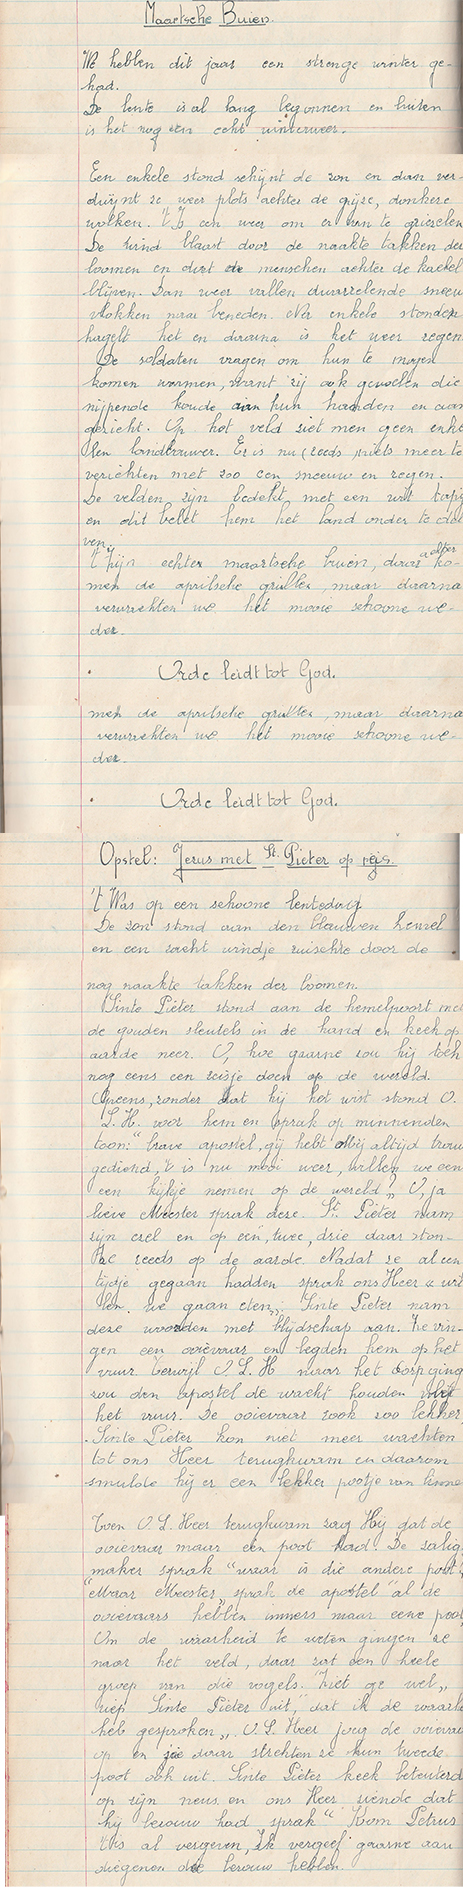 Maartsche Buien.
We hebben dit jaar een strenge winter ge-
had.
De lente is al lang begonnen en buiten
is het nog een echt winterweer.
Een enkele stond schijnt de zon en dan ver-
dwijnt ze weer plots achter de grijze, donkere
wolken. 't Is een weer om er van te griezelen
De wind blaast door de naakte takken der
boomen en doet de menschen achter de kachel
blijven. Dan weer vallen dwarrelende sneeuw
vlokken naar beneden. Na enkele stonden
hagelt het en daarna is het weer regen.
De soldaten vragen om hun te mogen
komen warmen, want zij ook gevoelen die
nijpende koude aan hun handen en aan
gezicht. Op het veld ziet men geen enke
len landbouwer. Er is nu (reeds) niets meer te
verichten met zoo een sneeuw en regen.
De velden zijn bedekt met een wit tapij
en dit belet hem het land onder te del
ven.
't Zijn echter maartsche buien, daar achter ko-
men de aprilsche grillen, maar daarna
verwachten we het mooie schoone we-
der.
Orde leidt tot God.
men de aprilsche grillen, maar daarna
verwachten we het mooie schoone we-
der.
Orde leidt tot God.
Opstel: Jezus met St. Pieter op reis.
't Was op een schoone lentedag
De zon stond aan den blauwen hemel
en een zacht windje ruischte door de
nog naakte takken der boomen.
Sinte Pieter stond aan de hemelpoort met
de gouden sleutels in de hand en keek op
aarde neer. O, hoe gaarne zou hij toch
nog eens een reisje doen op de wereld.
Opeens, zonder dat hij het wist stond O.
L. H. voor hem en sprak op minnenden
toon: "brave apostel, gij hebt Mij altijd trouw
gediend, 't is nu mooi weer, willen we een
een kijkje nemen op de wereld?" O, ja
lieve Meester sprak deze. St. Pieter nam
zijn ezel en op een, twee, drie daar ston-
de reeds op de aarde. Nadat ze al een
tijdje gegaan hadden sprak ons Heer "wil
len we gaan eten". Sinte Pieter nam
deze woorden met blijdschap aan. Ze vin-
gen een ooievaar en legden hem op het
vuur. Terwijl O. L. H naar het dorp ging
zou den apostel de wacht houden
het vuur. De ooievaar rook zoo lekker
Sinte Pieter kon niet meer wachten
tot ons Heer terugkwam en daarom
smulde hij er een lekker pootje van binne
Toen O. L. Heer terugkwam zag Hij dat de
ooievaar maar een poot had. De zalig
maker sprak "waar is die andere poot"
"Maar Meester, sprak de apostel "al de
ooievaars hebben immers maar eene poot
Om de waarheid te weten gingen ze
naar het veld, daar zat een heele
groep van die vogels. "Ziet ge wel,,
riep Sinte Pieter uit, "dat ik de waarh
heb gesproken,,. O. L. Heer joeg de ooievaa
op en zie daar strekten ze hun tweede
poot ook uit. Sinte Pieter keek beteuterd
op zijn neus en ons Heer ziende dat
hij berouw had sprak "Kom Petrus
't is al vergeven, Ik vergeef gaarne aan
diegenen die berouw hebben.